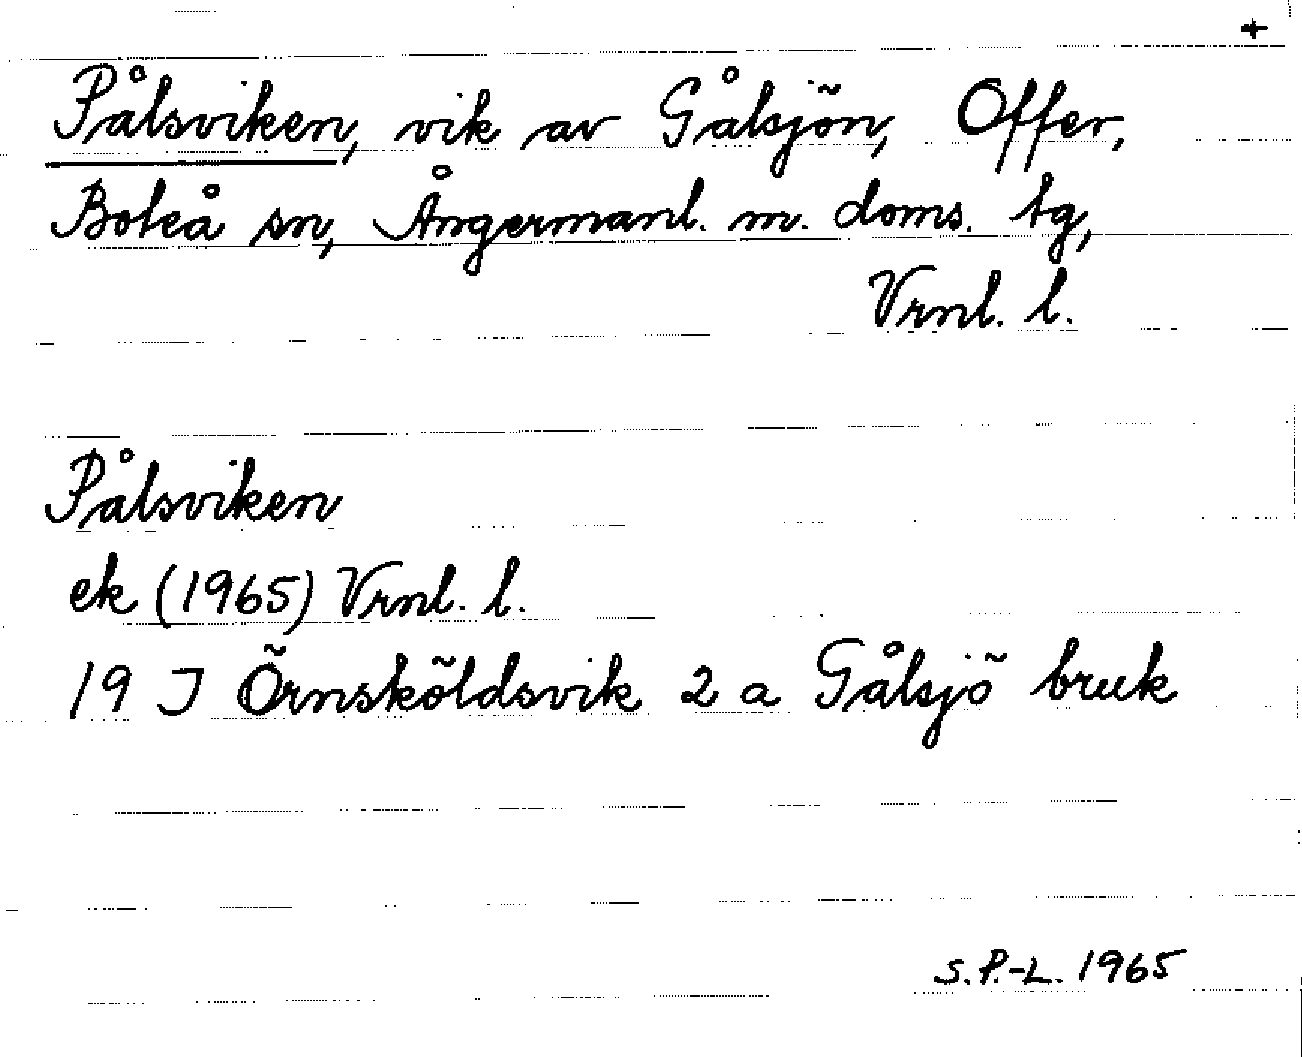 +
Pålsviken, vik av Gålsjön, Offer,
Boteå sn, Ångermanl. m. doms. tg,
Vrnl. l.
Pålsviken
ek (1965) Vrnl. l.
19 J Örnsköldsvik 2 a Gålsjö bruk
S.P.-L. 1965